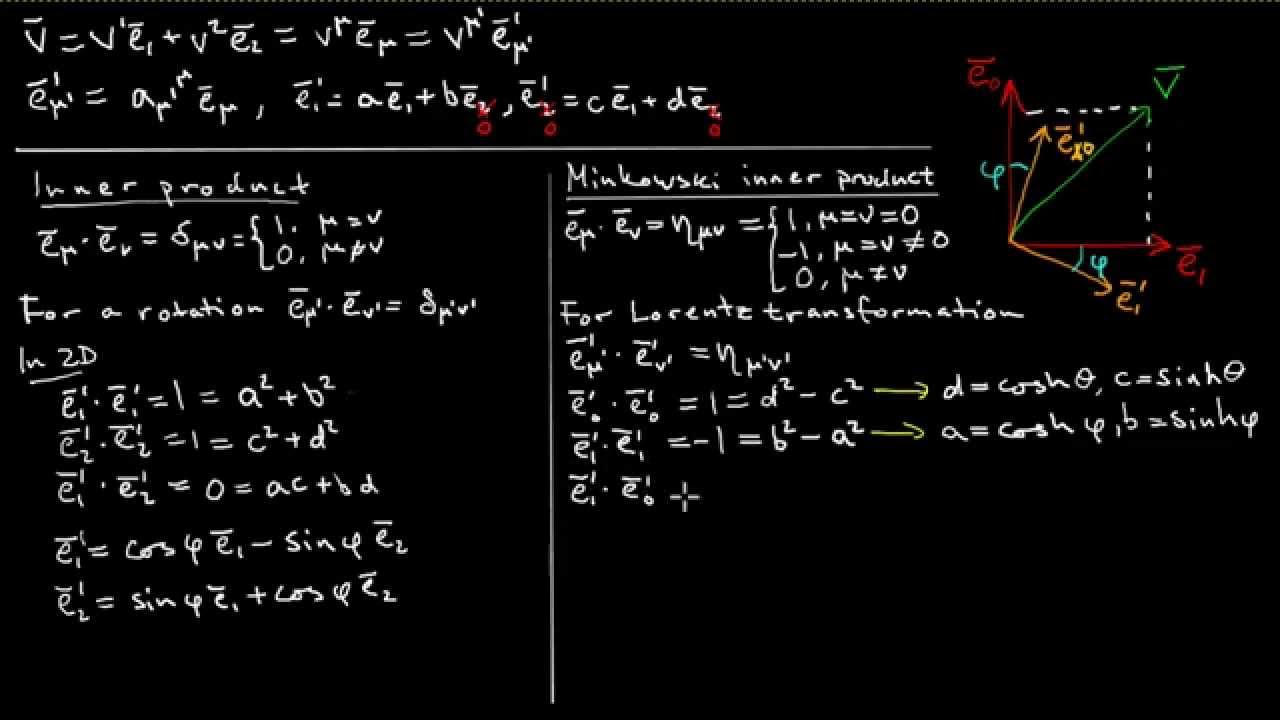 v̄ = v¹ē₁ + v²ē₂ = v^μ ē_μ = v^μ' ē'_μ'
ē'_μ' = a_μ'^μ ē_μ , ē'₁ = aē₁ + bē₂ 0 , ē'₂ 0 = cē₁ + dē₂ 0
Inner product
ē_μ · ē_ν = δ_μν = { 1, μ = ν
0, μ ≠ ν
For a rotation ē_μ' · ē_ν' = δ_μ'ν'
In 2D
ē'₁ · ē'₁ = 1 = a² + b²
ē'₂ · ē'₂ = 1 = c² + d²
ē'₁ · ē'₂ = 0 = ac + bd
ē'₁ = cos φ ē₁ − sin φ ē₂
ē'₂ = sin φ ē₁ + cos φ ē₂
Minkowski inner product
ē_μ · ē_ν = η_μν = { 1, μ = ν = 0
−1, μ = ν ≠ 0
0, μ ≠ ν
For Lorentz transformation
ē'_μ' · ē'_ν' = η_μ'ν'
ē'₀ · ē'₀ = 1 = d² − c² → d = cosh θ, c = sinh θ
ē'₁ · ē'₁ = −1 = b² − a² → a = cosh φ, b = sinh φ
ē'₁ · ē'₀
ē₀
v̄
ē'₀
φ
ē₁
φ
ē'₁